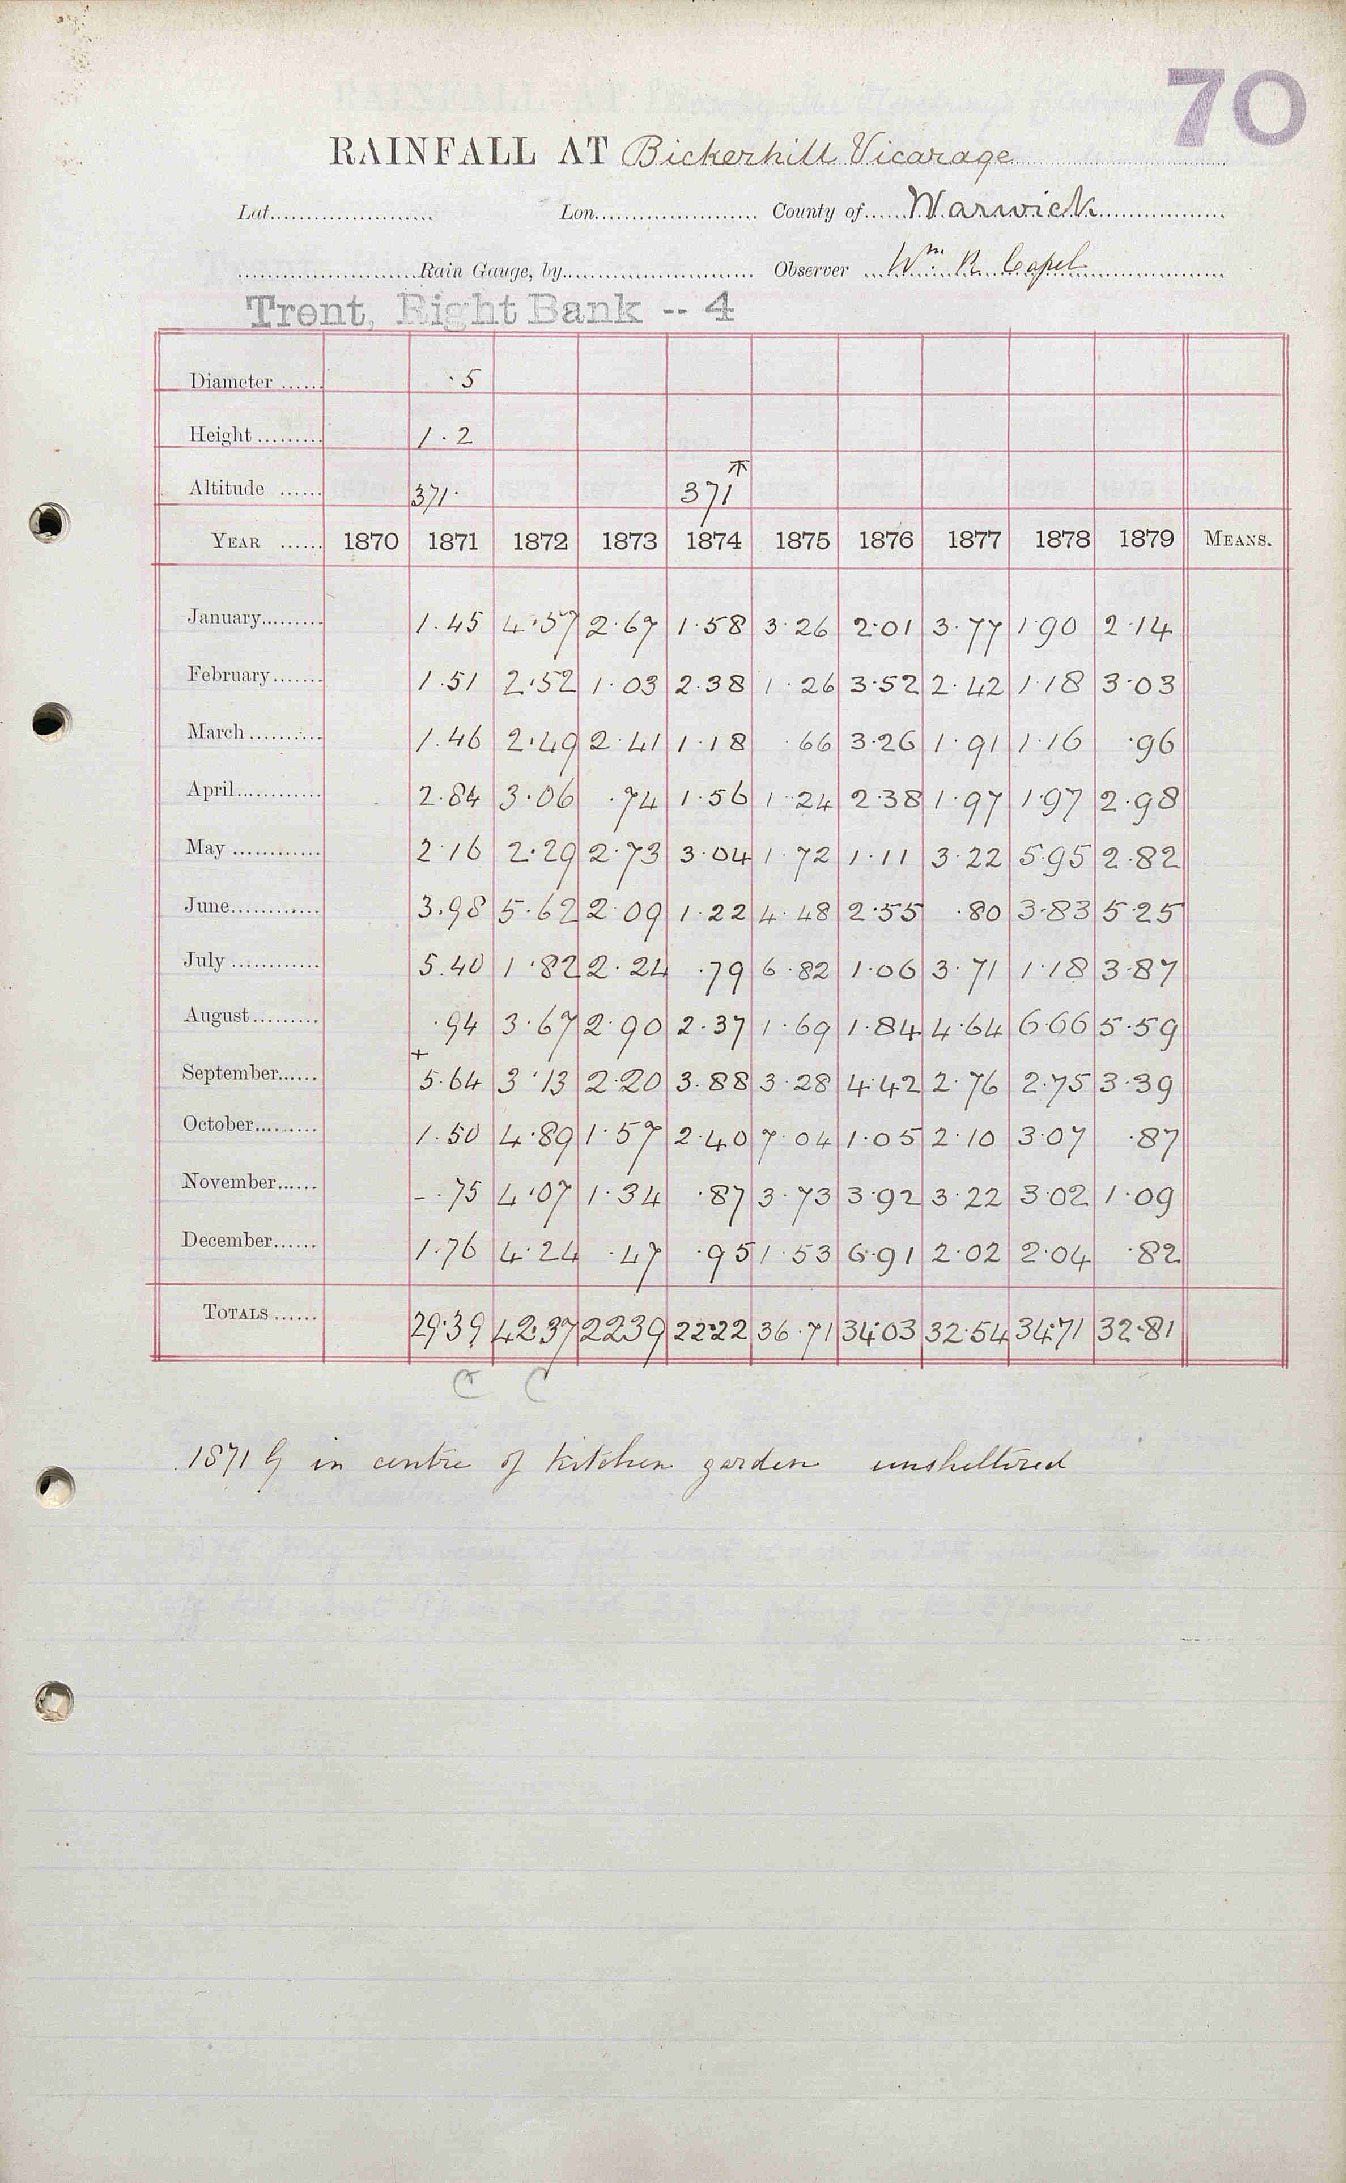 70
RAINFALL AT Bickerhill Vicarage
Lat. Lon. County of Warwick
Rain Gauge, by Observer Wm. R. Capel
Trent, Right Bank -- 4
Diameter ·5
Height 1·2
Altitude 371· 371
YEAR 1870 1871 1872 1873 1874 1875 1876 1877 1878 1879 MEANS.
January 1·45 4·57 2·67 1·58 3·26 2·01 3·77 1·90 2·14
February 1·51 2·52 1·03 2·38 1·26 3·52 2·42 1·18 3·03
March 1·46 2·49 2·41 1·18 ·66 3·26 1·91 1·16 ·96
April 2·84 3·06 ·74 1·56 1·24 2·38 1·97 1·97 2·98
May 2·16 2·29 2·73 3·04 1·72 1·11 3·22 5·95 2·82
June 3·98 5·62 2·09 1·22 4·48 2·55 ·80 3·83 5·25
July 5·40 1·82 2·24 ·79 6·82 1·06 3·71 1·18 3·87
August ·94 3·67 2·90 2·37 1·69 1·84 4·64 6·66 5·59
September +5·64 3·13 2·20 3·88 3·28 4·42 2·76 2·75 3·39
October 1·50 4·89 1·57 2·40 7·04 1·05 2·10 3·07 ·87
November -·75 4·07 1·34 ·87 3·73 3·92 3·22 3·02 1·09
December 1·76 4·24 ·47 ·95 1·53 6·91 2·02 2·04 ·82
TOTALS 29·39 42·37 2239 22·22 36·71 34·03 32·54 34·71 32·81
C C
1871 G in centre of kitchen garden unsheltered